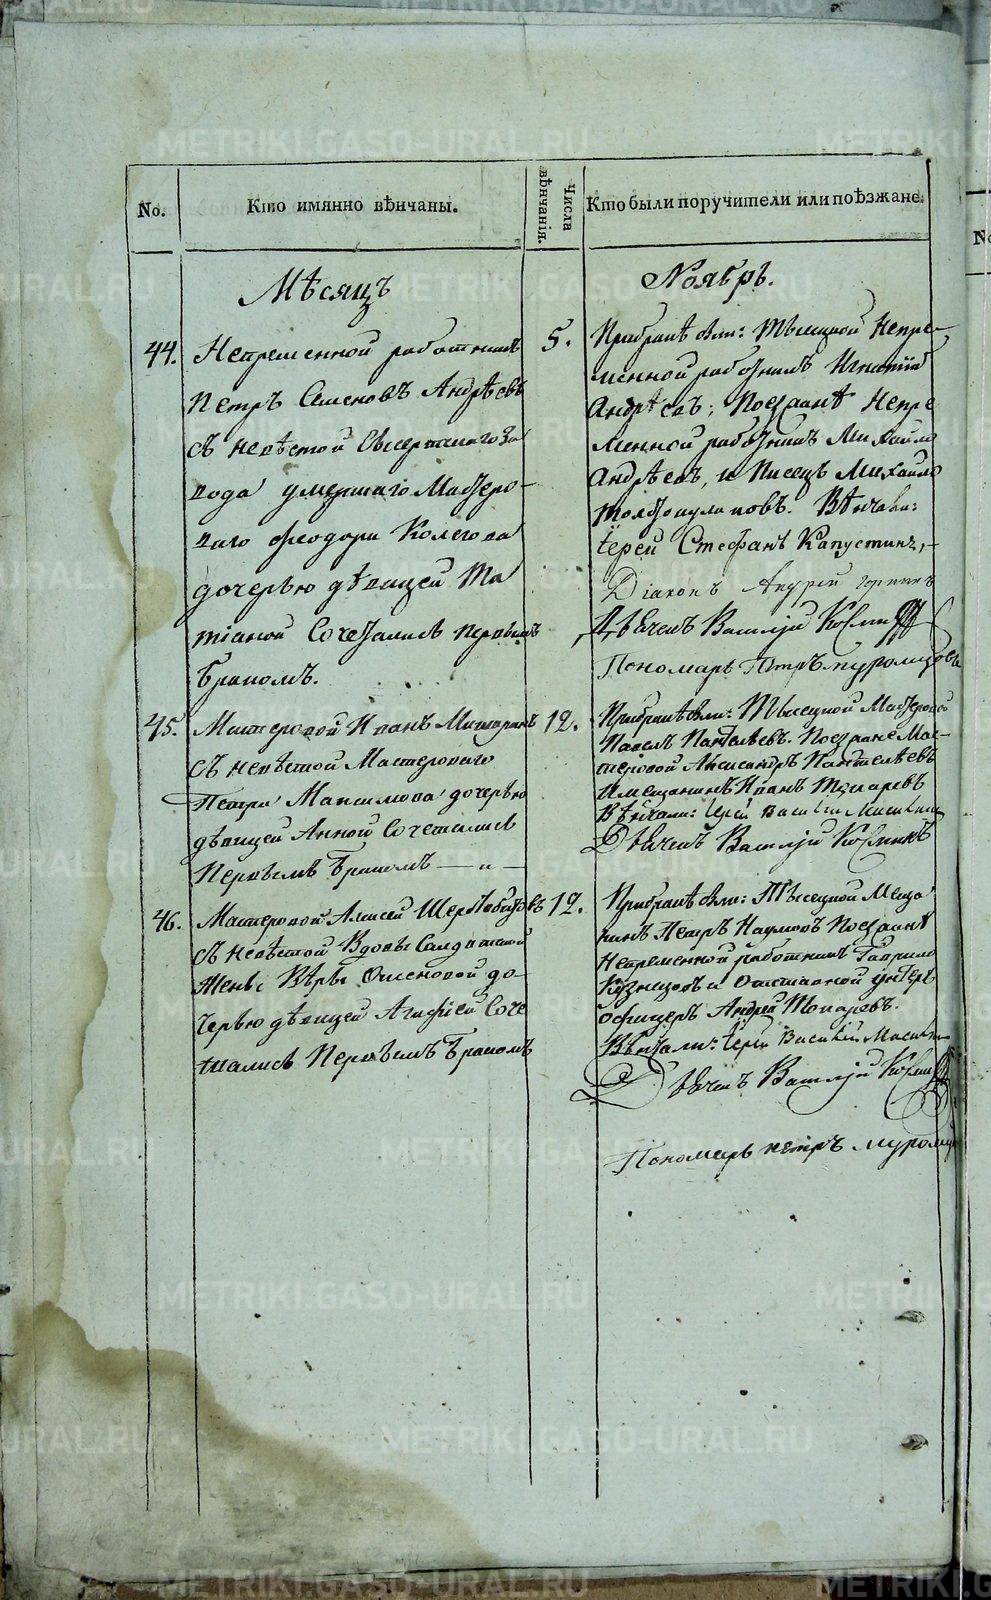 No.
Кто имянно вѣнчаны.
Числа вѣнчанія.
Кто были поручители или поѣзжане.
Мѣсяцъ
Ноябрь.
44.
Непременной работникъ
Петръ Семеновъ Андрѣевъ
съ невѣстой Сысертскаго За
вода умершаго Мастеро-
ваго Феодора Колегова
дочерью дѣвицей Та
тіаной Сочетались первымъ
бракомъ.
5.
При бракѣ были: Тысяцкой Непре-
менной работникъ Игнатій
Андрѣевъ; Поезжанѣ Непре
менной работникъ Михайло
Андрѣевъ, и Писецъ Михайло
Вѣнчали:
Іерей Стефанъ Капустинъ,
Діаконъ Андрей
Дьячекъ Василій
Пономарь Петръ Муромцовъ
45.
Мастеровой Иванъ
съ невѣстой Мастероваго
Петра Максимова дочерью
дѣвицей Анной Сочетались
Первымъ бракомъ — „ —
12.
При бракѣ были: Тысяцкой Мастеровой
Павелъ Пантелѣевъ. Поезжане Мас-
теровой Александръ Пантелѣевъ
и мещанинъ Иванъ Токаревъ
Вѣнчали: Іерей Василій
Дьячекъ Василій
46.
Мастеровой Алексей
съ невѣстой Вдовы Солдатской
Жены Вѣры Семеновой до
черью дѣвицей Агафіей Соче
тались Первымъ бракомъ
12.
При бракѣ были: Тысяцкой Меща
нинъ Петръ Наумовъ Поезжанѣ
Непременной работникъ Гаврило
Кузнецовъ и Отставной унтеръ
офицеръ Андрей Токаревъ.
Вѣнчали: Іерей Василій
Дьячекъ Василій
Пономарь Петръ Муромцовъ
METRIKI.GASO-URAL.RU